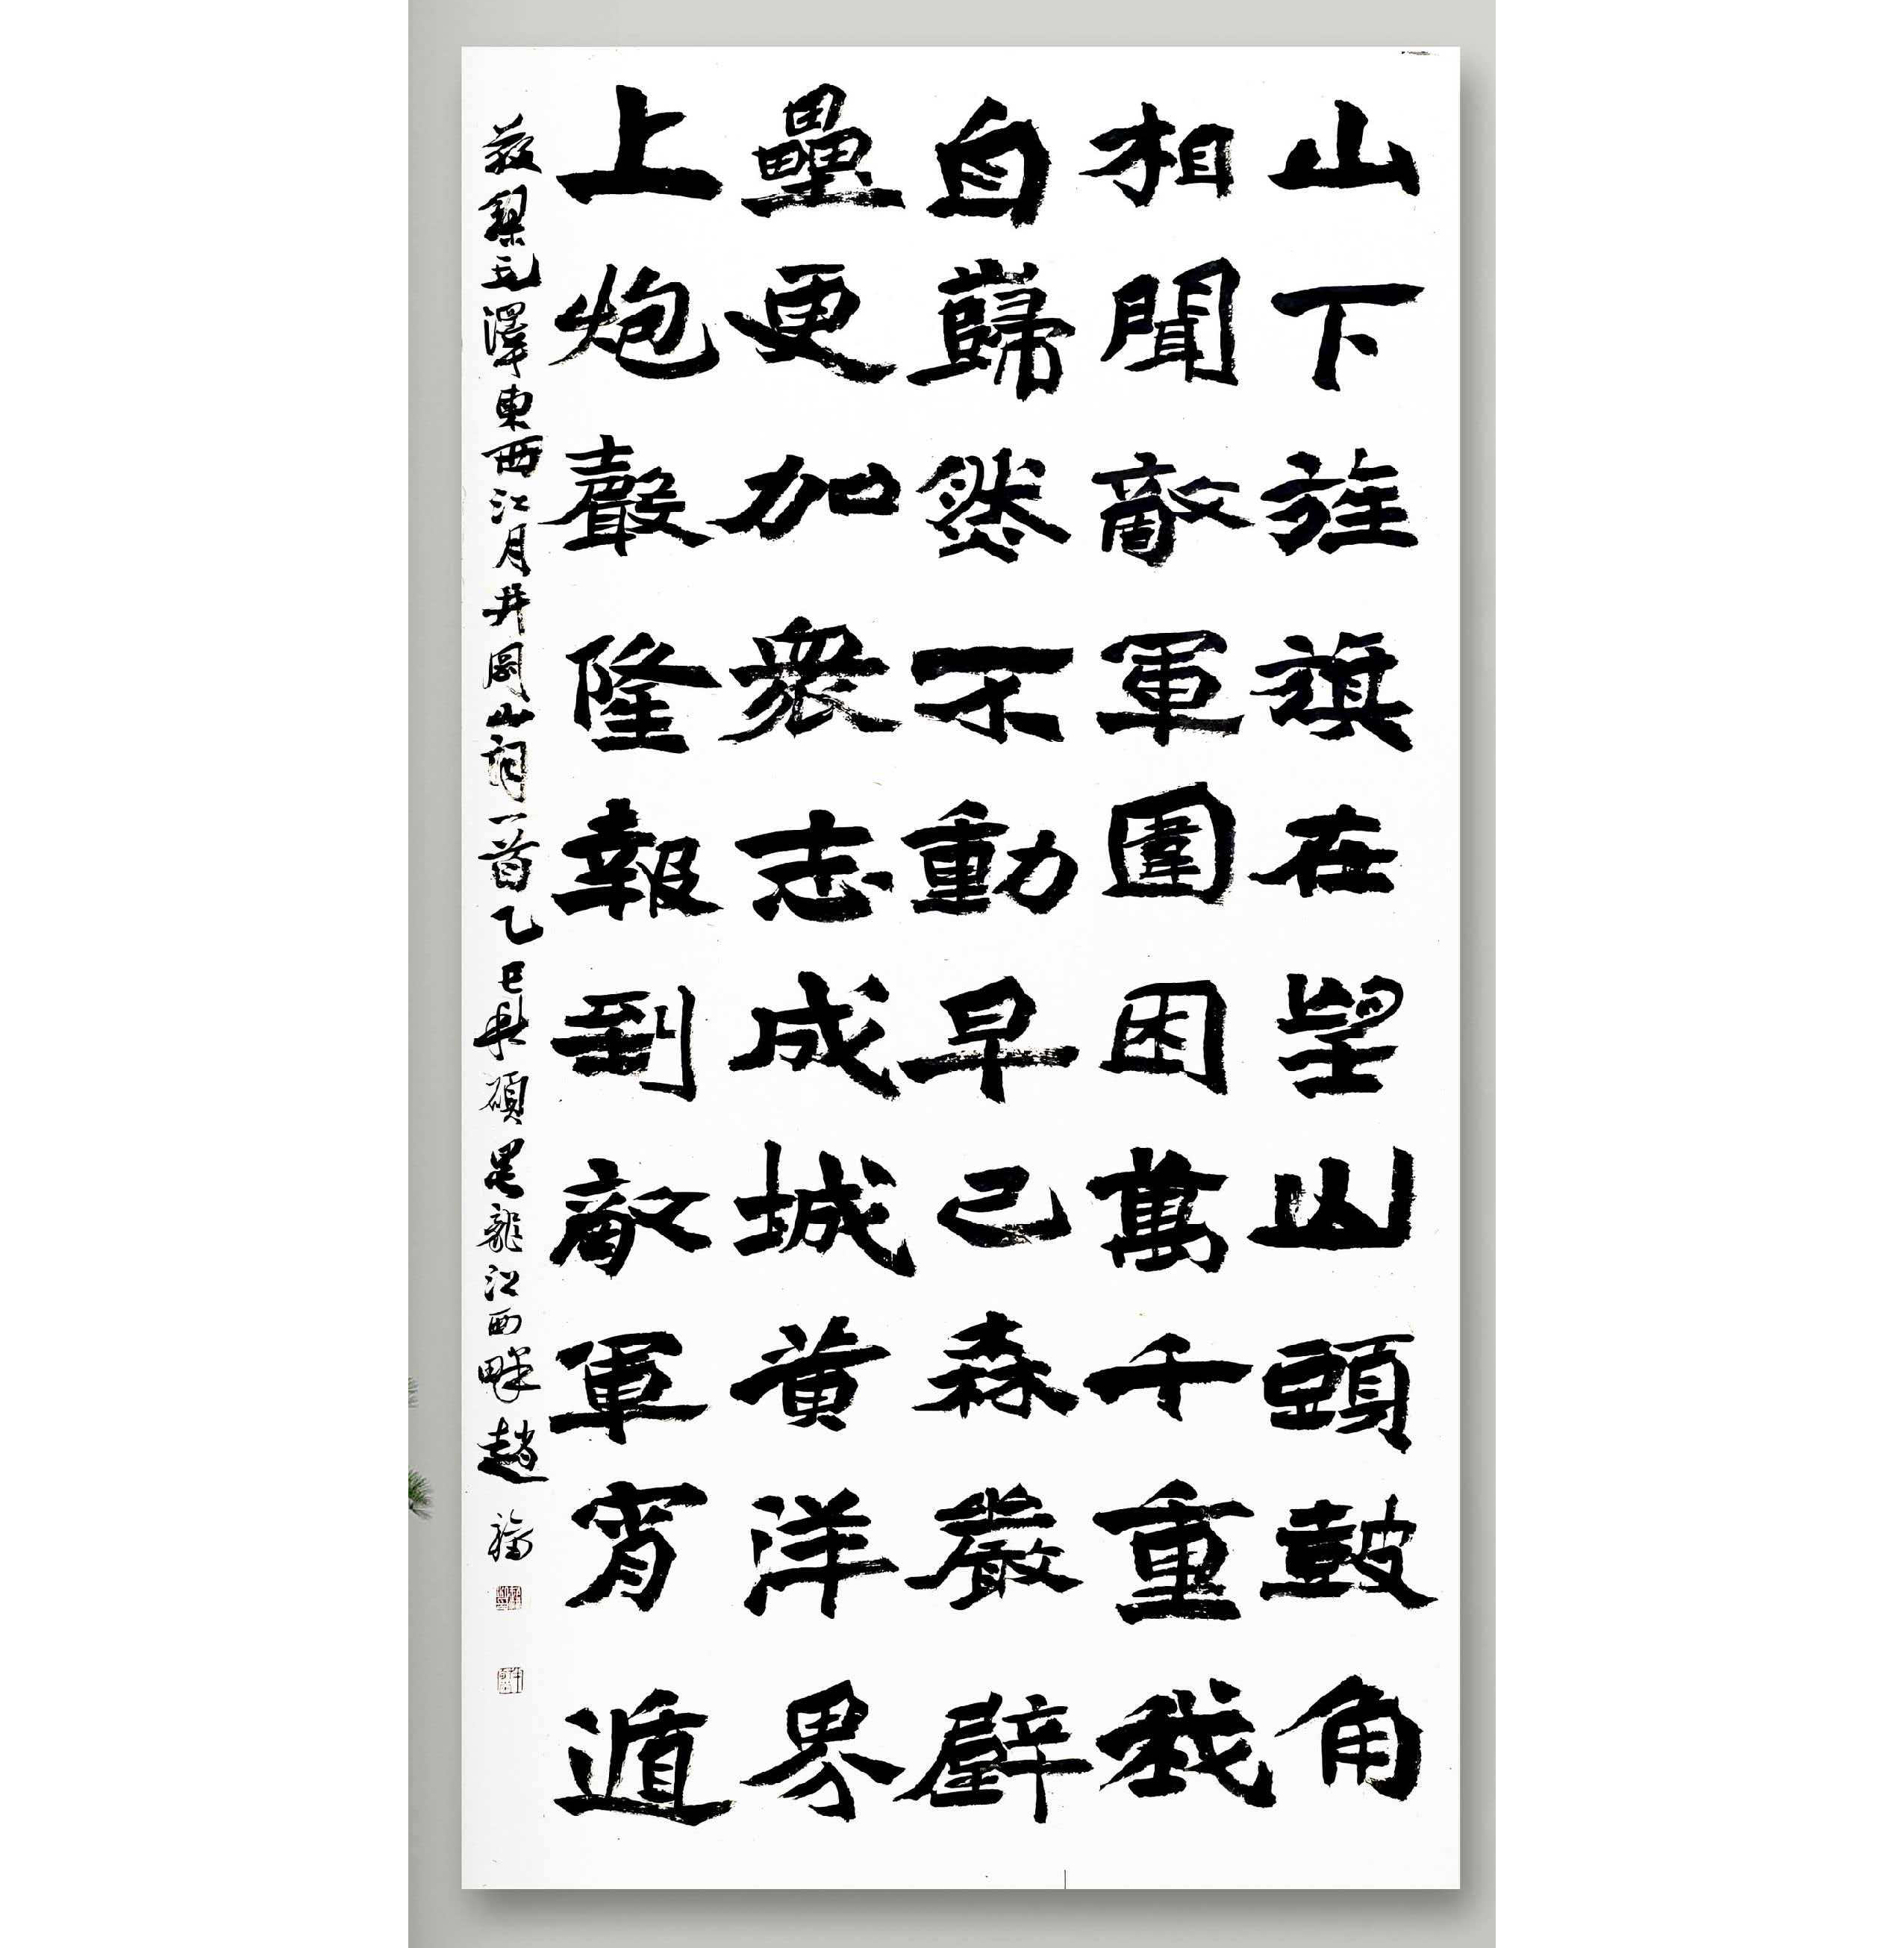 山下旌旗在望山頭鼓角
相聞敵軍圍困萬千重我
自巋然不動早已森嚴壁
壘更加衆志成城黄洋界
上炮聲隆報到敵軍宵遁
毛澤東西江月井岡山詞一首乙巳 碩 龍江西畔趙